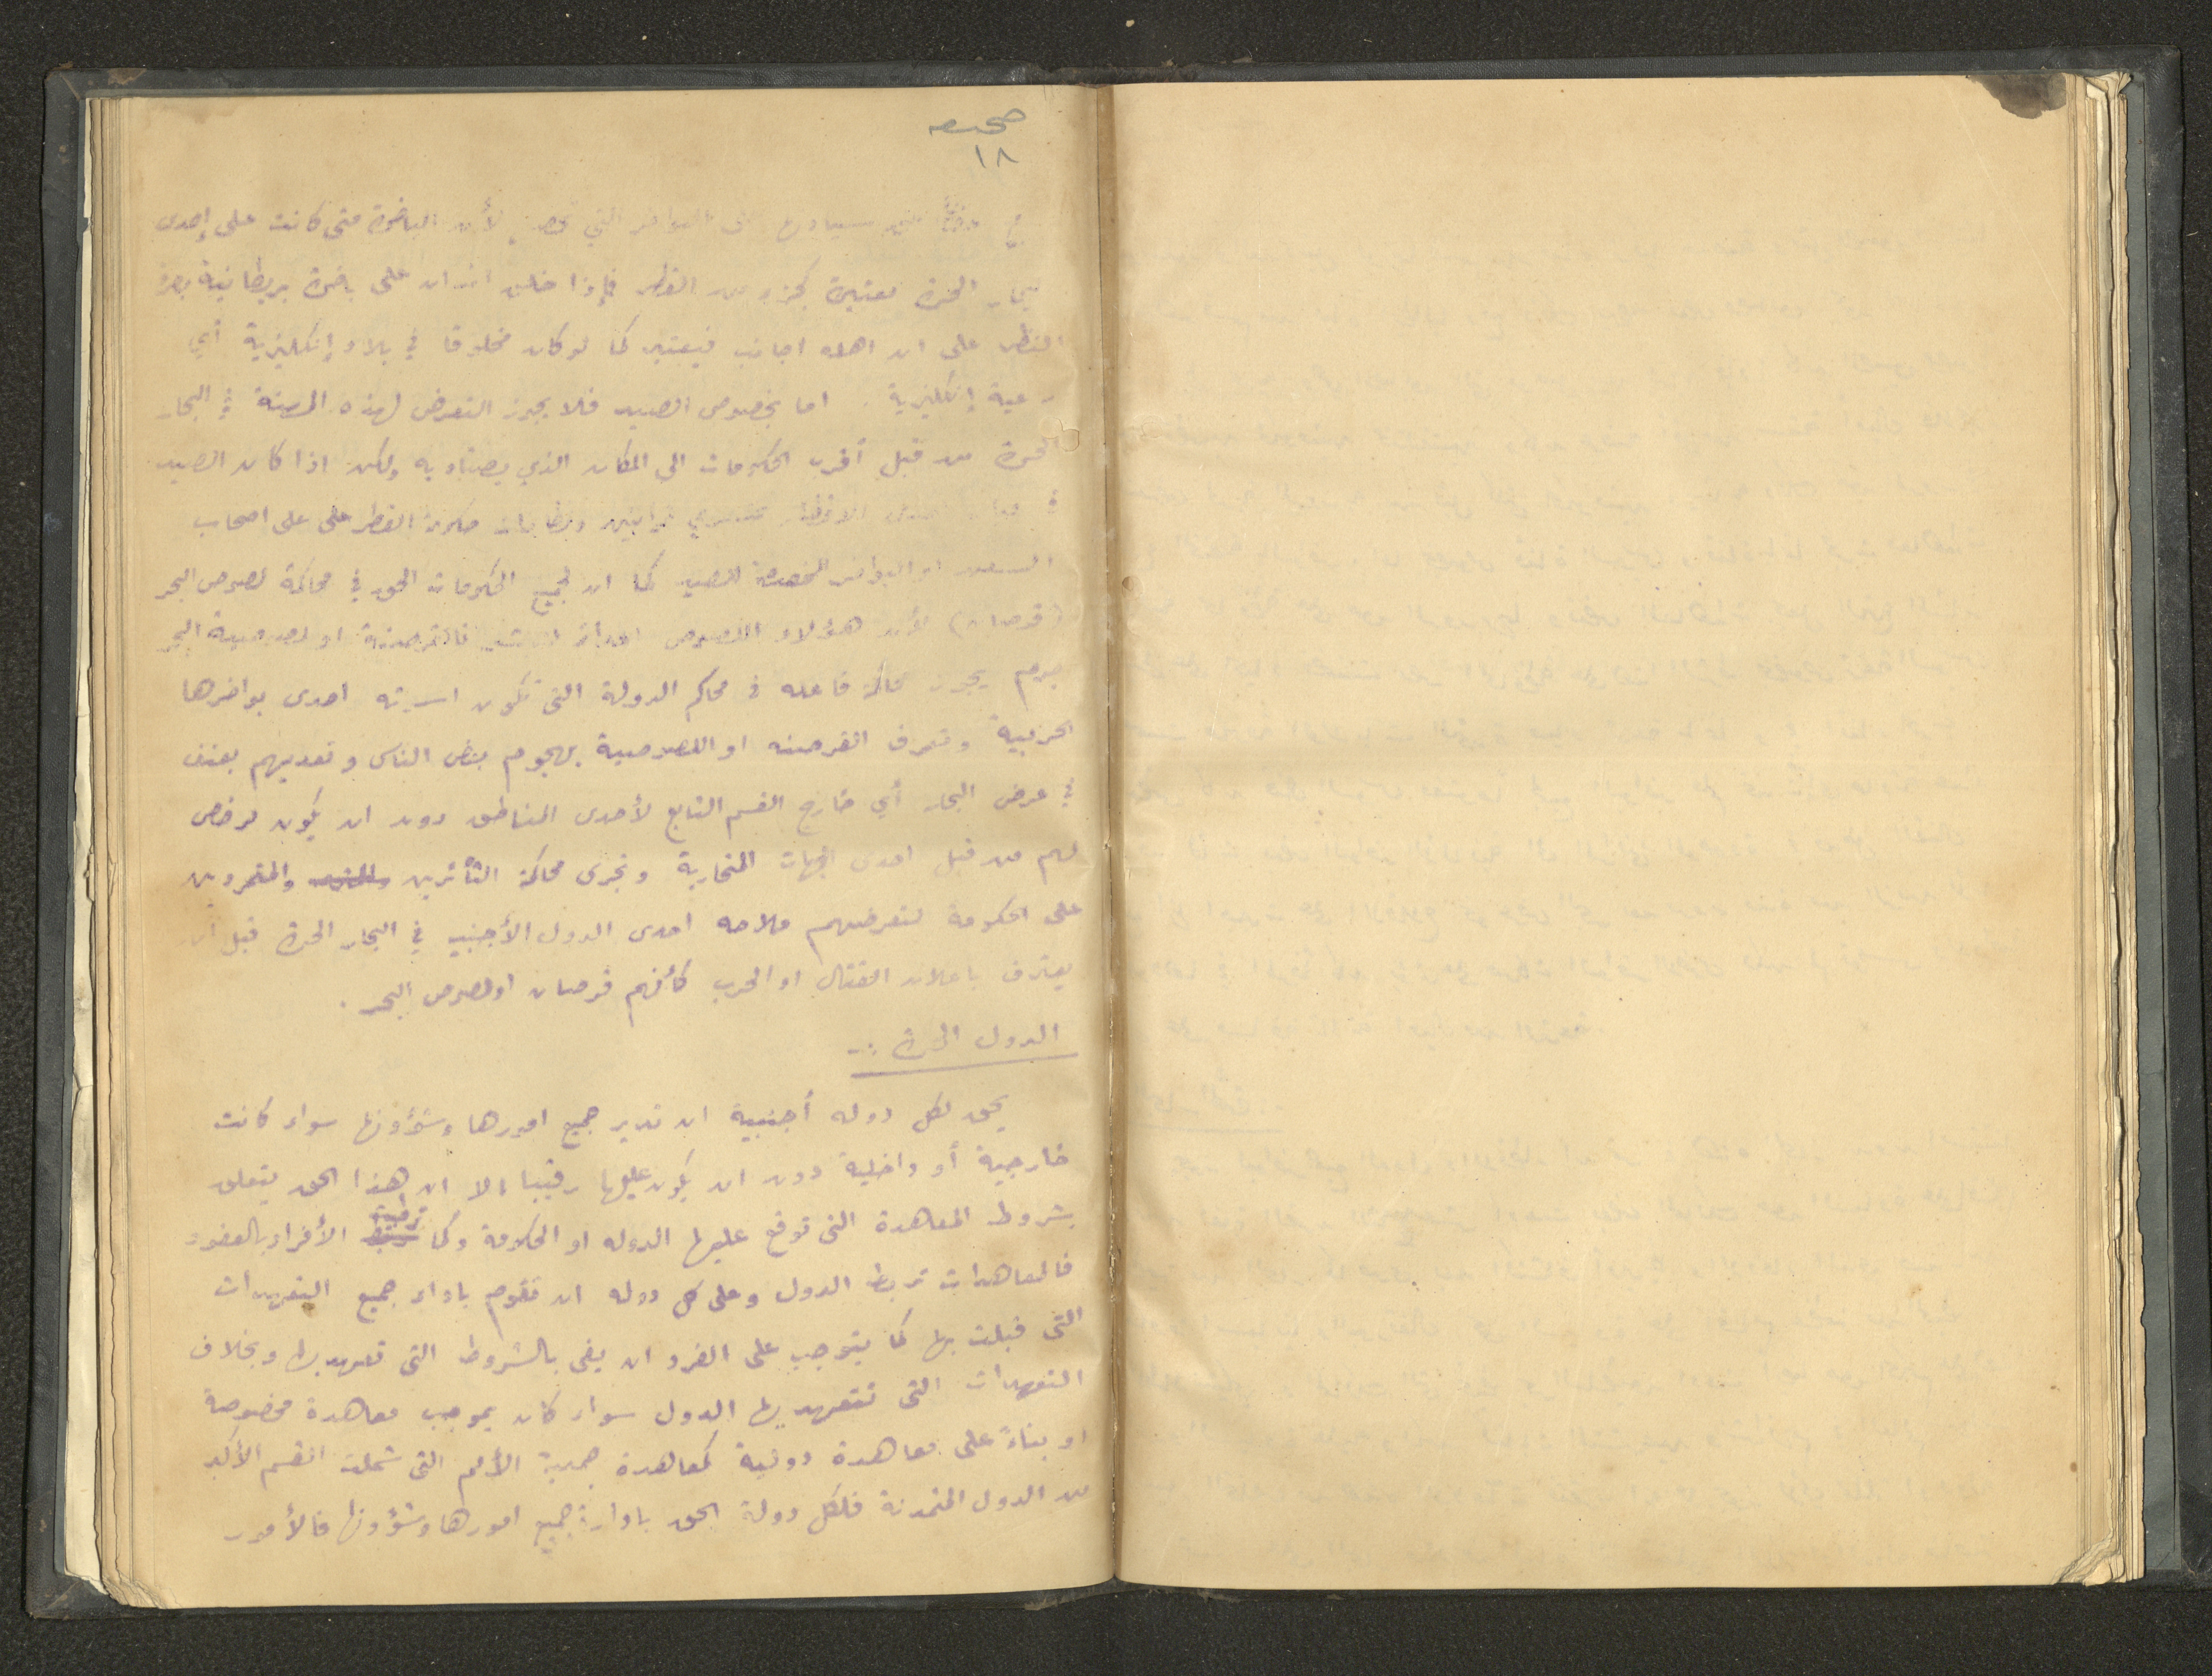 صحيفه
١٨
لأن الباخرة متى كانت على إحدى
البحار الحرة معتبرة كجزء من القطر فإذا خلق انسان على باخرة بريطانية بصرف
النظر على ان اهله اجانب فيعتبر كما لو كان مخلوقا في بلاد إنكليزية أي
رعية إنكليزية. اما بخصوص الصيد فلا يجوز التعرض لهذه المهنة في البحار
الحرة من قبل أقرب الحكومات الى المكان الذي يصتاد به ولكن اذا كان الصيد
في قوانين ونظامات حكومة القطر على على اصحاب
السفن او البواخر المخصصة للصيد كما ان لجميع الحكومات الحق في محاكمة لصوص البحر
(قرصان) لأن هؤلاء اللصوص اعداء فالقرصنة او لصوصية البحر
جرم يجوز محاكمة فاعله في محاكم الدولة التى تكون اسرته احدى بواخرها
الحربية وتعرف القرصنه او اللصوصية بهجوم بعض الناس وتعديهم بعنف
في عرض البحار أي خارج القسم التابع لأحدى المناطق دون ان يكون مرخص
لهم من قبل احدى الجهات المتحاربة وتجرى محاكمة الثأئرين والمتمردين
على الحكومة لتعرضهم ملاحه احدى الدول الأجنبيه في البحار الحرة قبل ان
يعترف باعلان القتال او الحرب كأنهم قرصان او لصوص البحر.
الدول الحرة :-
يحق لكل دوله أجنبية ان تدير جميع امورها وشؤونها سواء كانت
خارجية أو داخلية دون ان يكون عليها رقيبا الا ان هذا الحق يتعلق
بشروط المعاهدة التى توقع عليها الدوله او الحكومة وكما ترتبط الأفراد بالعقود
فالمعاهدات تربط الدول وعلى كل دوله ان تقوم باداء جميع التعهدات
التى قبلت بها كما يتوجب على الفرد ان يفى بالشروط التى تعهد بها وبخلاف
التعهدات التى تتعهد بها الدول سواء كان بموجب معاهدة مخصوصة
او بناءً على معاهدة دولية كمعاهدة جمعية الأمم التى شملت القسم الأكبر
من الدول المتمدنة فلكل دولة الحق بادارة جميع امورها وشؤونها فالأمور